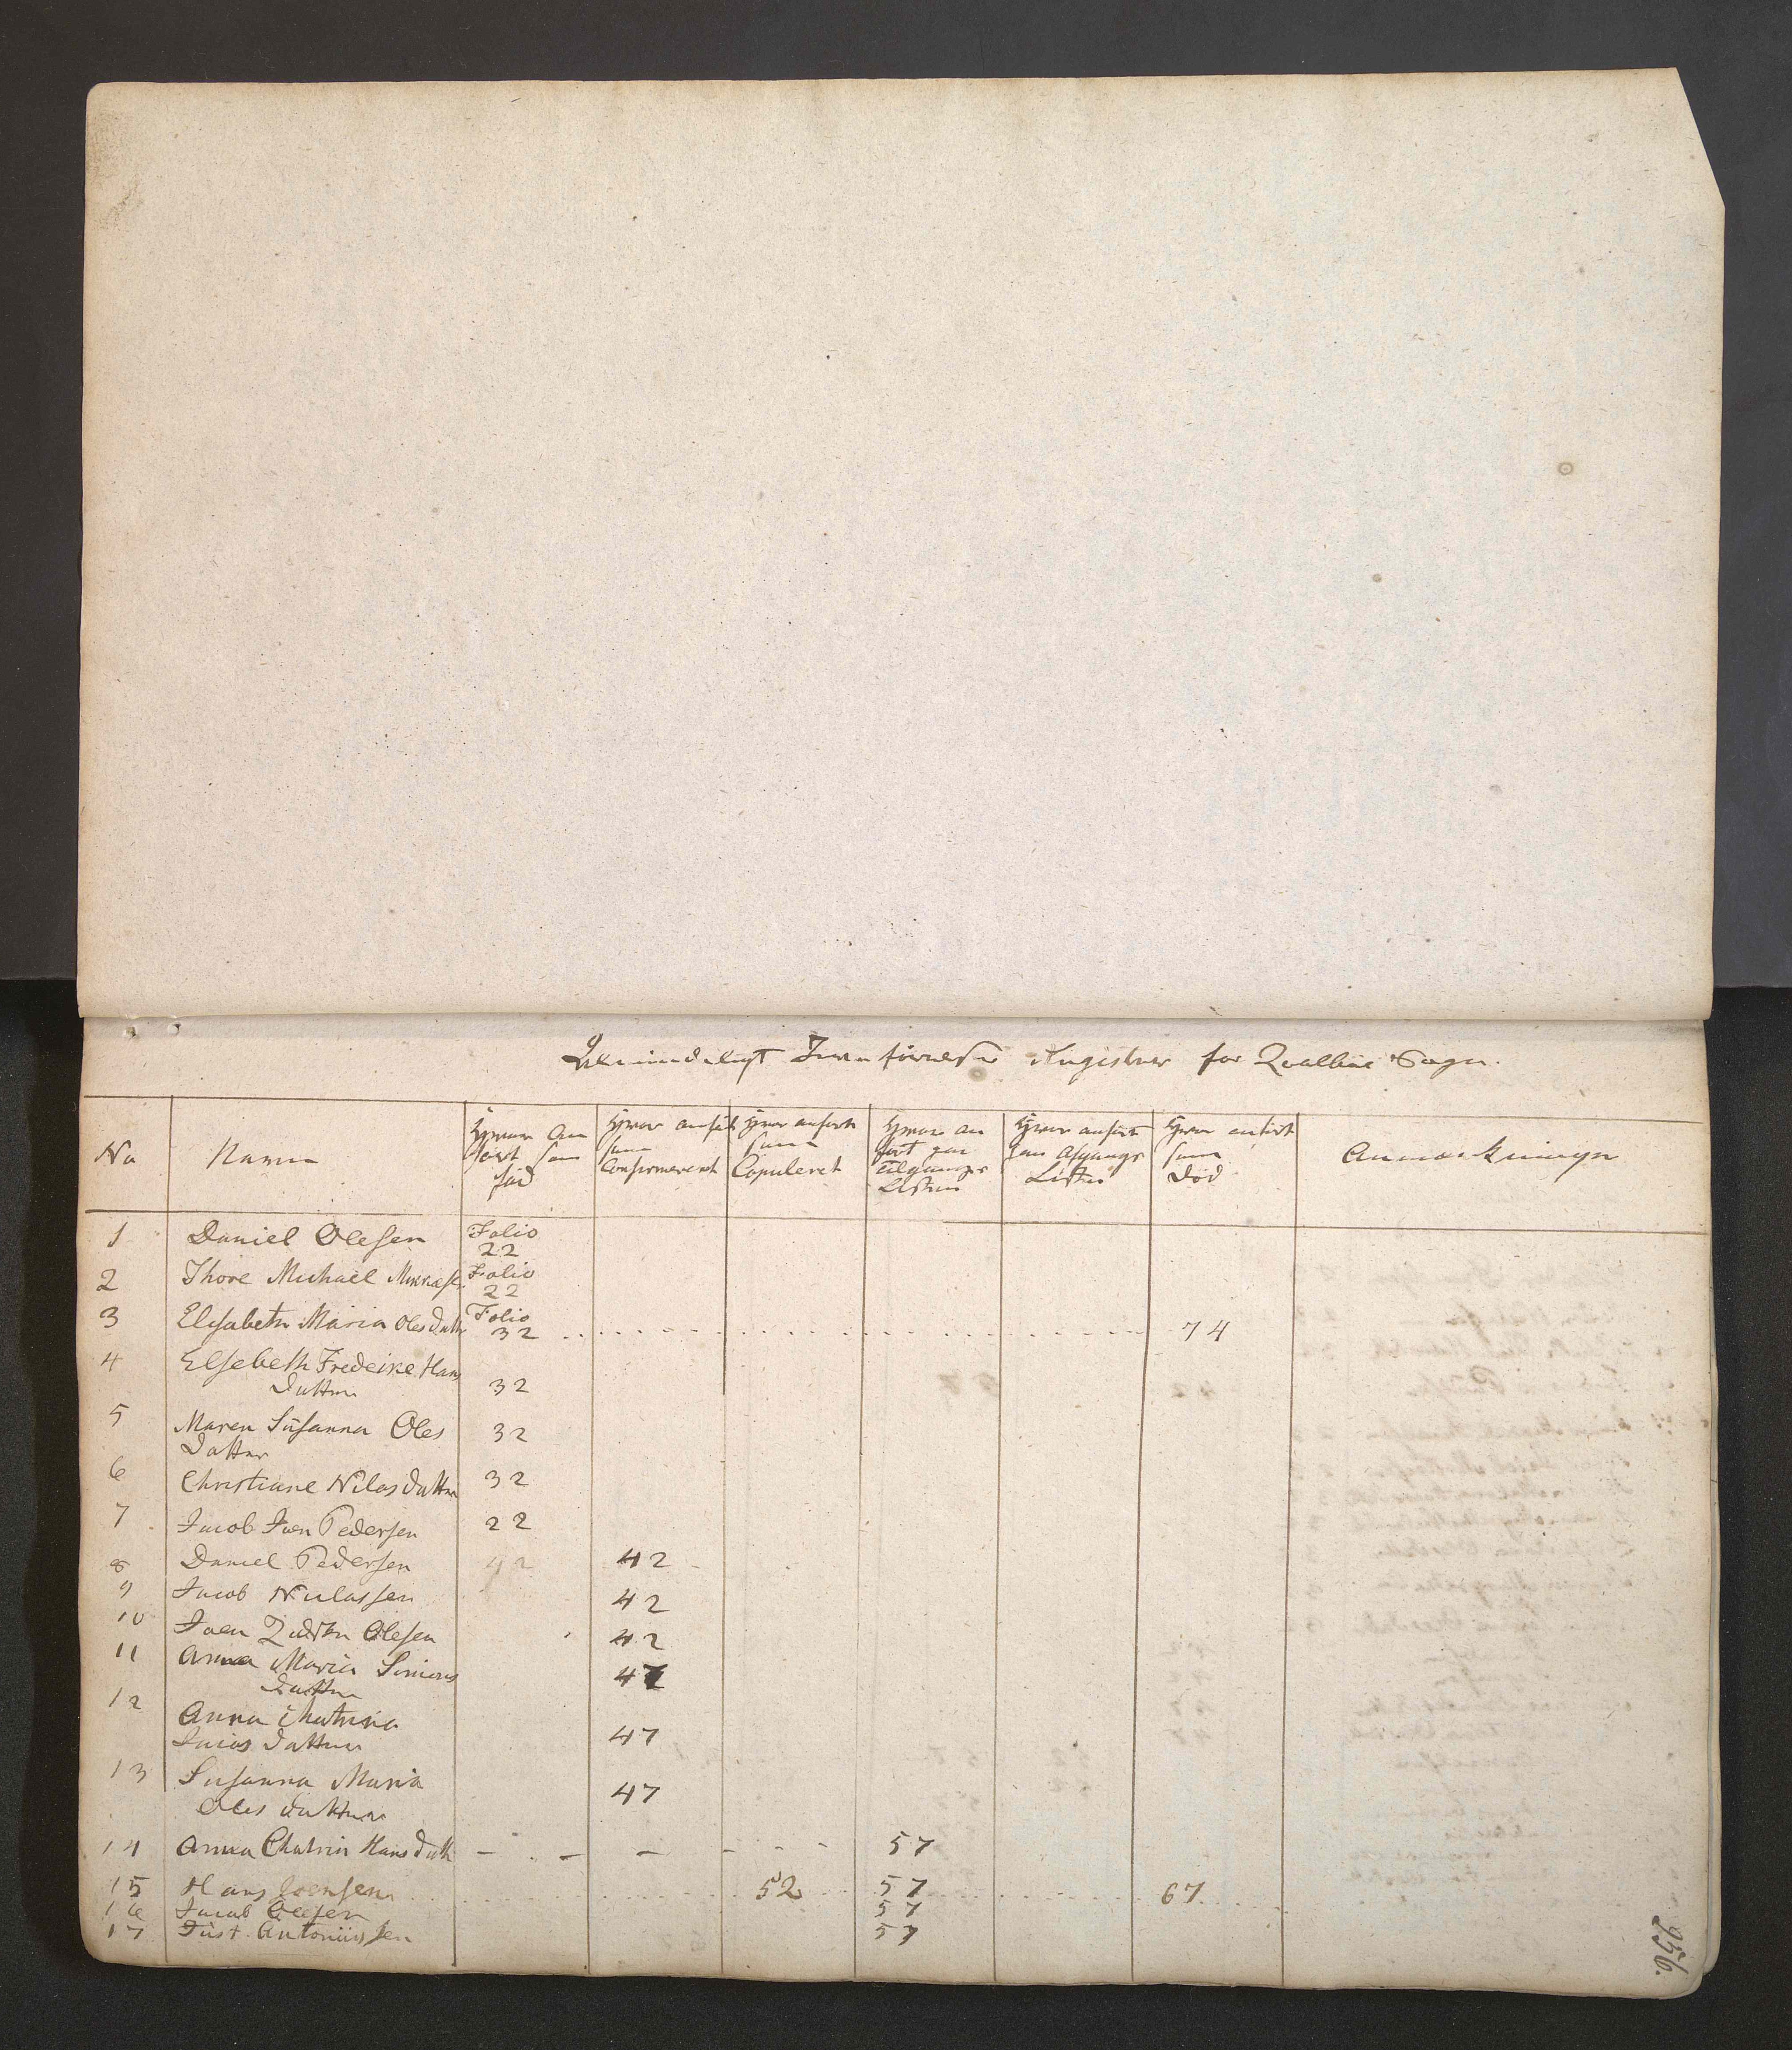 Almindeligt Jevnførelses Register for Qvalböe Sogn.
No Navn Hvor an ført som fød Hvor anført som Confirmeret Hvor anført som Copuleret Hvor an ført paa Tilgangs Listen Hvor anført paa Afgangs Listen Hvor anført som Död Anmærkninger
1 Daniel Olesen Folio 22
2 Thore Michael Folio 22
3 Elisabeth Maria Olesdatter Folio 32 74
4 Elsebeth Frederike Hans
Datter 32
5 Maren Susanna Oles 32
Datter
6 Christiane Nilasdatter 32
7 Jacob Joen Pedersen 22
8 Daniel Pedersen 42 42
9 Jacob Niclassen 42
10 Joen Olesen 42
11 Anna Maria Simons
Datter 47
12 Anna
Datter 47
13 Susanna Maria
Oles Datter 47
14 Anna Chatrin Hansdatt - - - - - 57
15 Hans Joensen 52 57 67
16 Jacob Olesen 57
17 Just Antoniussen 57
956.